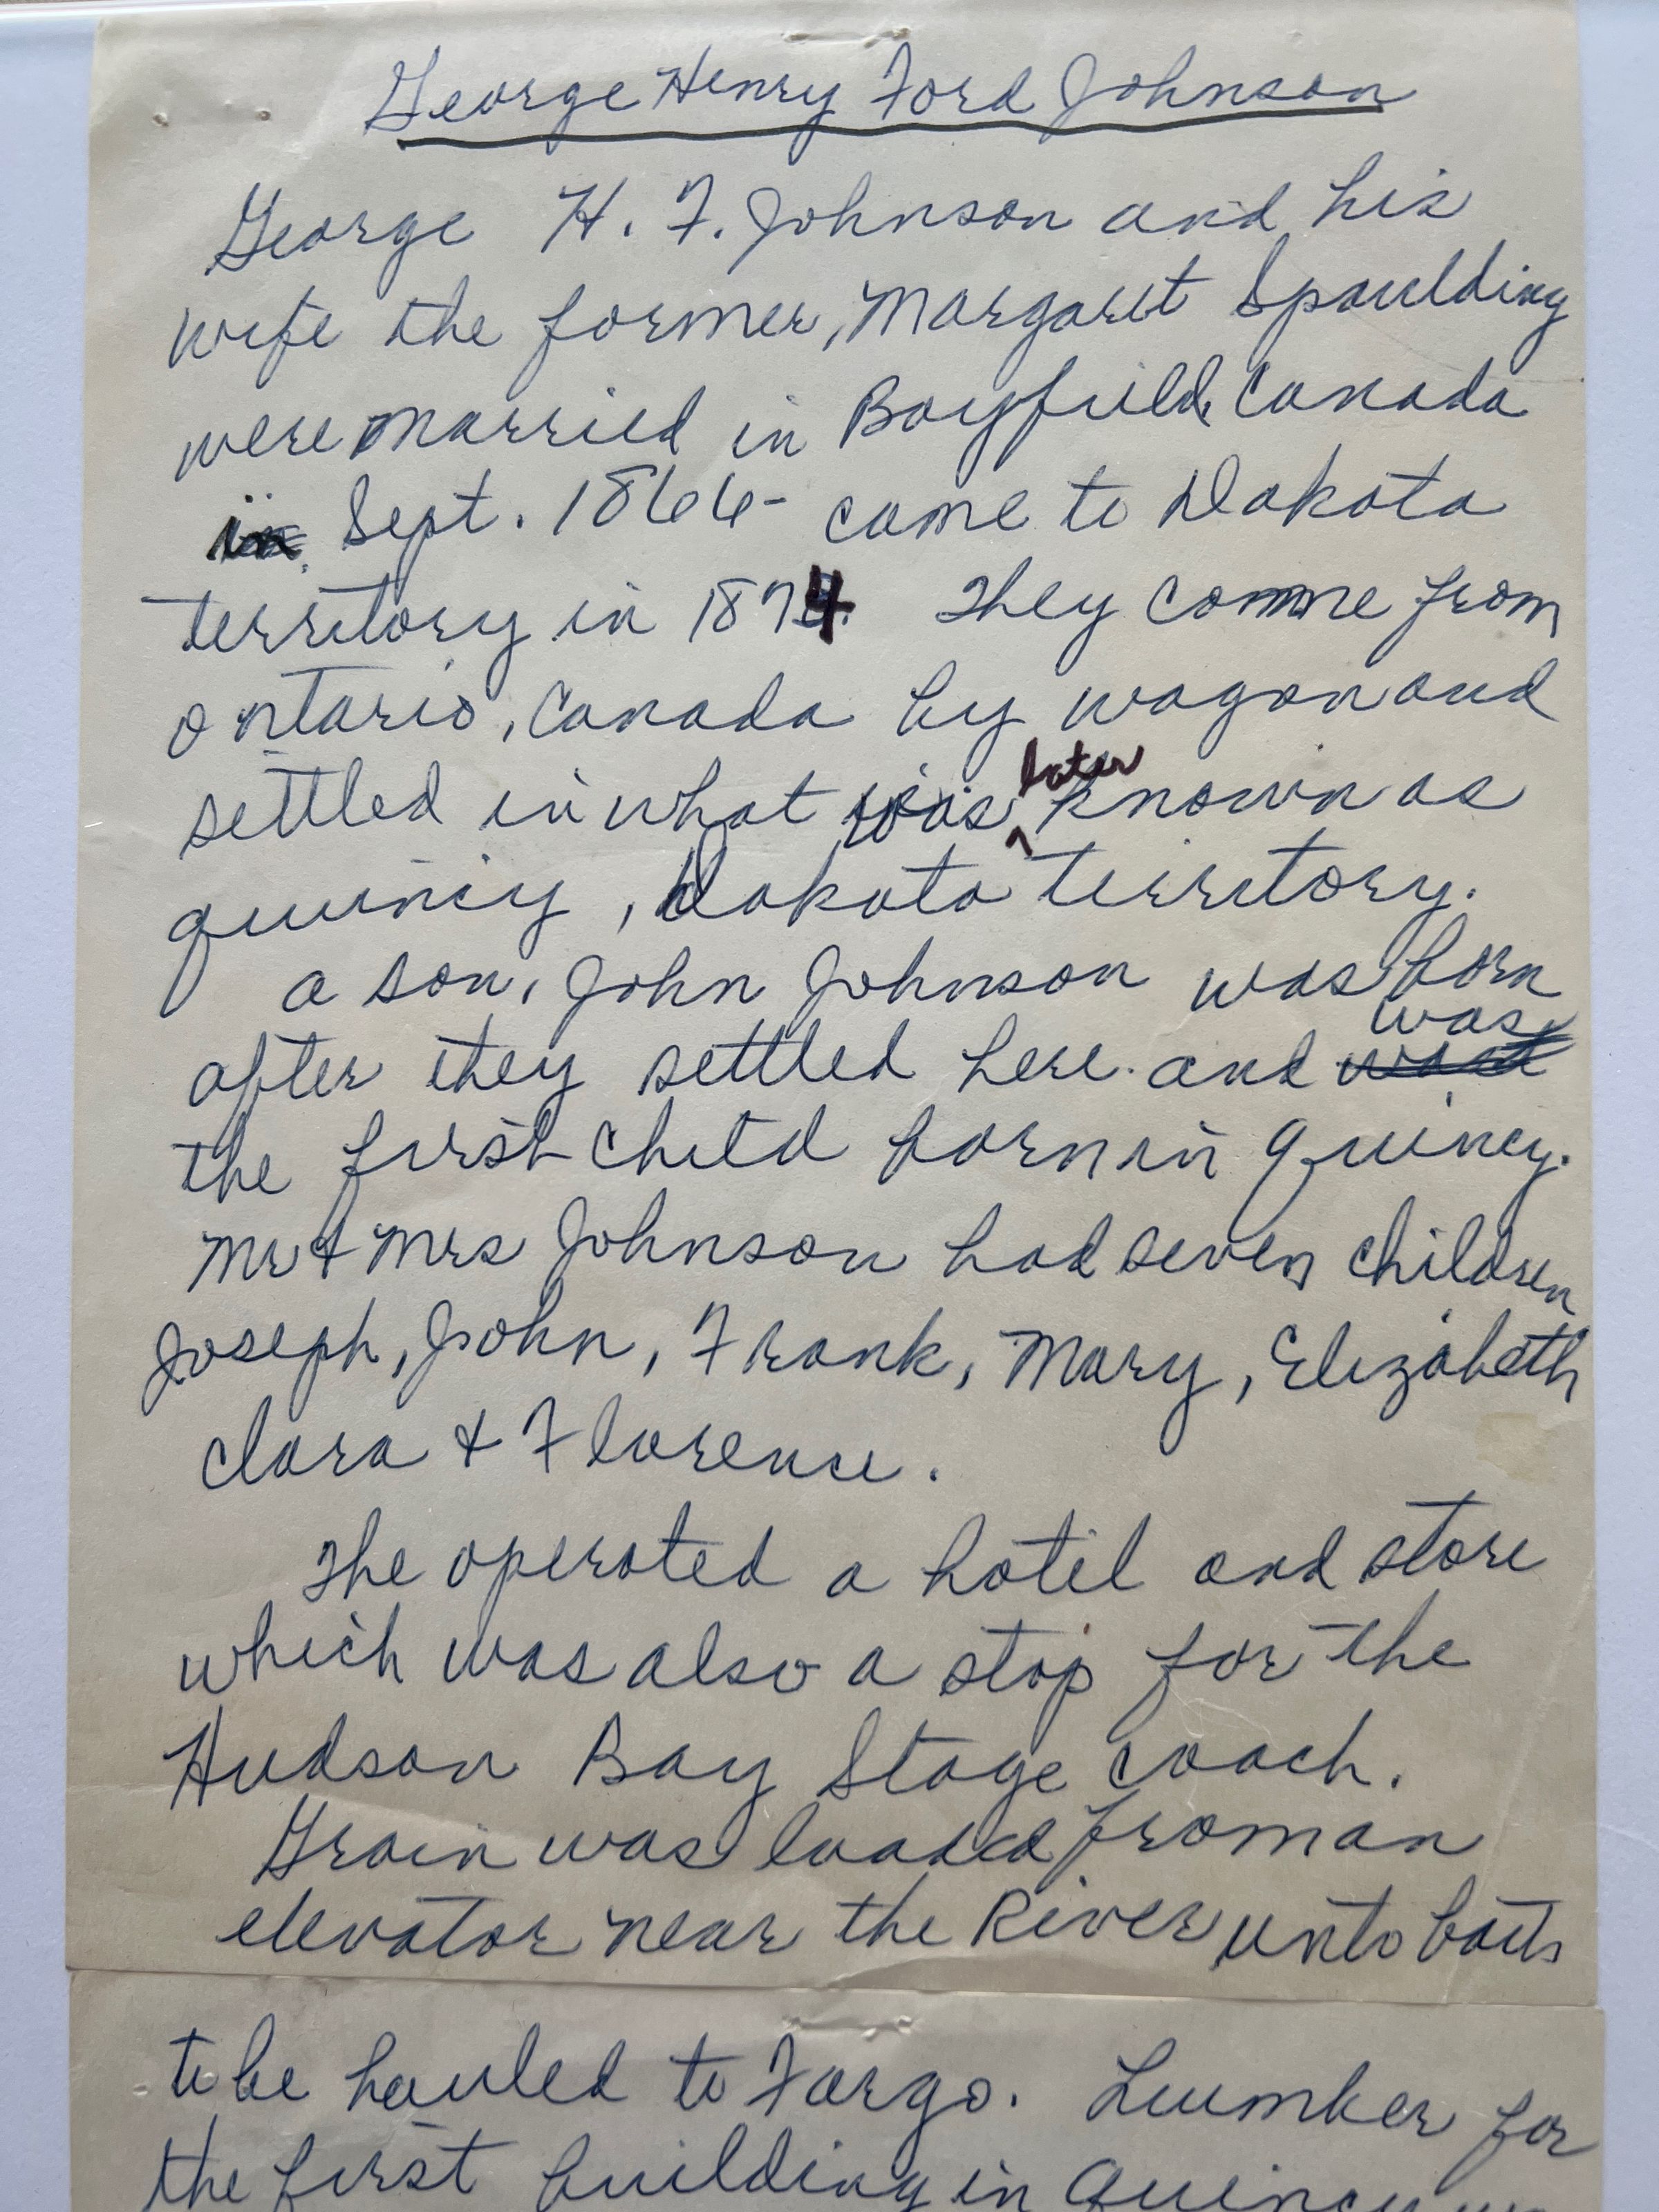 George Henry Ford Johnson
George H. F. Johnson and his
wife the former, Margaret Spaulding
were married in Bayfield, Canada
in Sept. 1866- came to Dakota
territory in 1874 They comme from
Ontario, Canada by wagon and
settled in what was later known as
Quincy, Dakota territory.
a son, John Johnson was born
after they settled here. and was
the first child born in Quincy.
Mr & Mrs Johnson had seven children
Joseph, John, Frank, Mary, Elizabeth
Clara & Florence.
The operated a hotel and store
which was also a stop for the
Hudson Bay Stage Coach.
Grain was loaded from an
elevator near the River unto boats
to be hauled to Fargo. Lumber for
the first building in Quincy